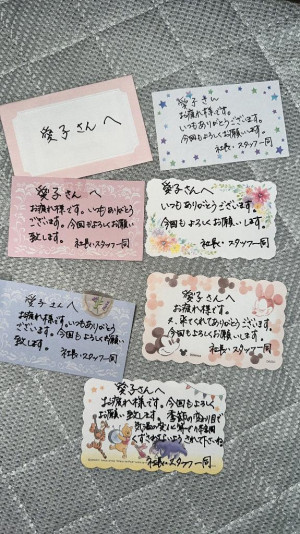 愛子さんへ
愛子さん
お疲れ様です。
いつもありがとうございます。
今回もよろしくお願いします。
社長・スタッフ一同
愛子さんへ
お疲れ様です。いつもありがとう
ございます。今回もよろしくお願い
致します。
社長・スタッフ一同
愛子さんへ
いつもありがとうございます。
今回もよろしくお願いします。
社長・スタッフ一同
愛子さんへ
お疲れ様です。
いつもありがとう
ございます。今回もよろしくお願い
致します。
社長・スタッフ一同
愛子さんへ
お疲れ様です。
又、来てくれてありがとうございます。
今回もよろしくお願いします。
社長・スタッフ一同
愛子さんへ
お疲れ様です。今回もよろしく
お願い致します。季節の変わり目で
気温の変化に
くずされないようされて下さいね
社長・スタッフ一同